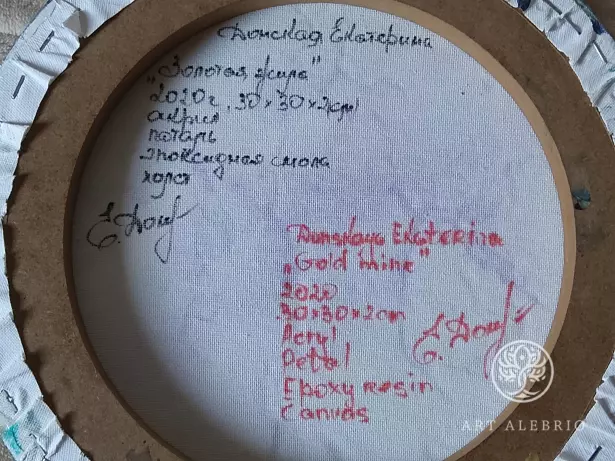 Донская Екатерина
„Золотая жила"
2020г, 30×30×2cm
акрил
поталь
эпоксидная смола
холст
Е.Дон
Donskaya Ekaterina
„Gold mine"
2020
30×30×2cm
Acryl
Petal
Epoxy resin
Canvas
Е.Дон
ART ALEBRIO